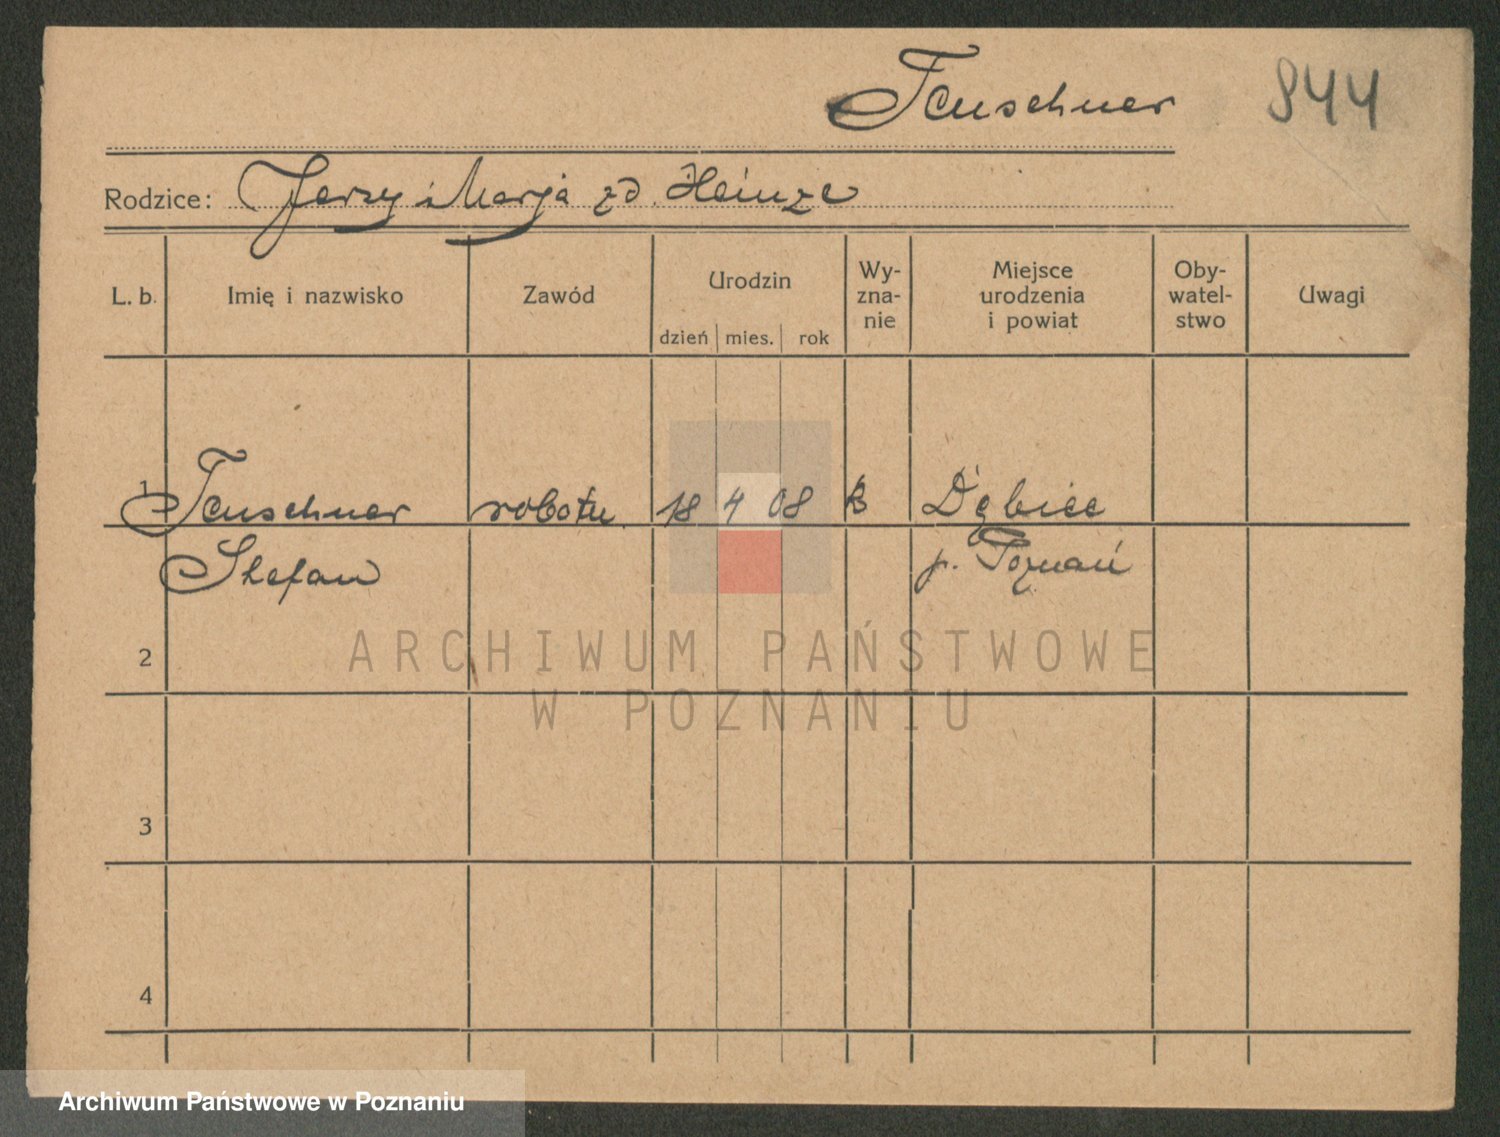 Teuschner 944
Rodzice: Jerzy i Marja zd. Heinze
L. b. Imię i nazwisko Zawód Urodzin dzień mies. rok Wy-zna-nie Miejsce urodzenia i powiat Oby-watel-stwo Uwagi
1 Teuschner robotn. 18 4 08 k Dębiec
Stefan p. Poznań
2
ARCHIWUM PAŃSTWOWE
W POZNANIU
3
4
Archiwum Państwowe w Poznaniu